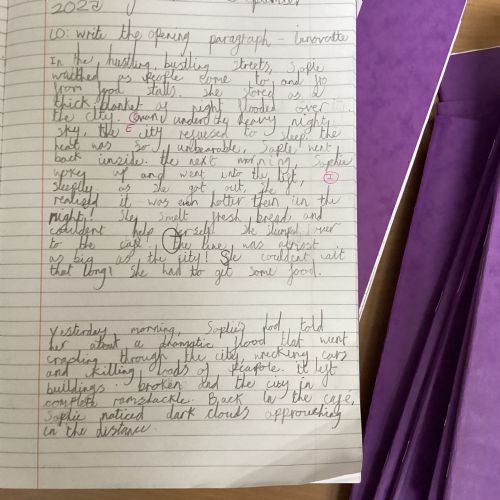 2022
LO: write the opening paragraph - innovate
In the hustling, bustling streets, Sofie
watched as people come to and
from food stalls. She stared as a
thick blanket of night flooded over
the city. Even under the heavy night
sky, the city refused to sleep. the
heat was so unbearable, Sofie went
back inside. the next morning, Sophie
up and went into the
as she got out, She
realised it was even hotter then in the
night! She smelt fresh bread and
couldent help herself. She slumped over
to the café! The line was almost
as big as the city! She couldent wait
that long! She had to get some food.
Yesterday morning, Sophie's dad told
her about a dramatic flood that went
crashing through the city, wrecking cars
and killing loads of people. it left
buildings broken and the city in
complete ramshackle. Back in the café,
Sophie noticed dark clouds approaching
in the distance.